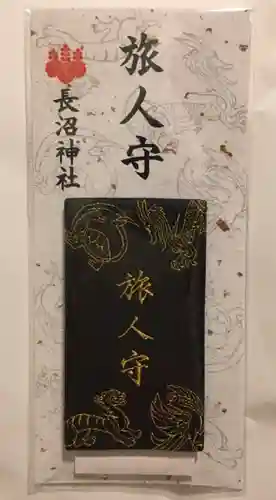 旅人守
長沼神社
旅人守